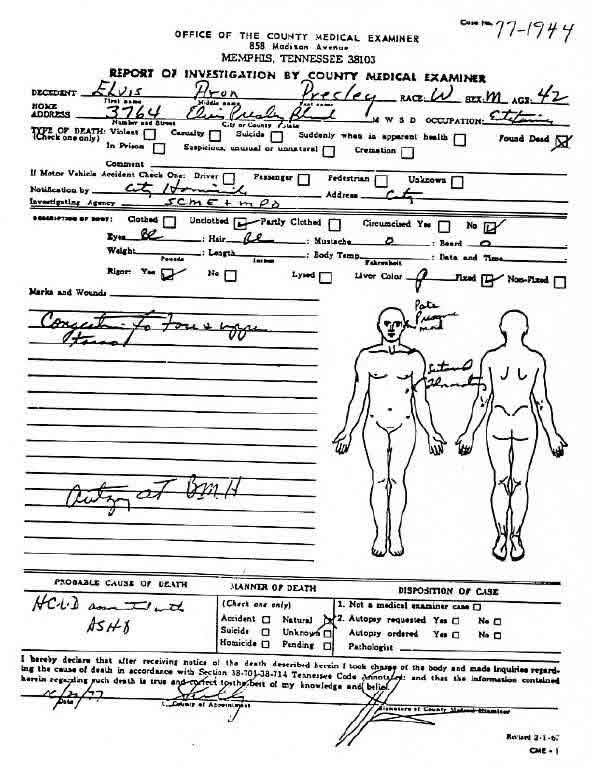 Case No. 77-1944
OFFICE OF THE COUNTY MEDICAL EXAMINER
858 Madison Avenue
MEMPHIS, TENNESSEE 38103
REPORT OF INVESTIGATION BY COUNTY MEDICAL EXAMINER
DECEDENT Elvis Aron Presley RACE: W SEX: M AGE: 42
First name Middle name Last name
HOME ADDRESS 3764 Elvis Presley Blvd M W S D OCCUPATION:
Number and Street City or County State
TYPE OF DEATH: Violent Casualty Suicide Suddenly when in apparent health Found Dead
(Check one only) In Prison Suspicious, unusual or unnatural Cremation
Comment
If Motor Vehicle Accident Check One: Driver Passenger Pedestrian Unknown
Notification by City Homicide Address City
Investigating Agency SCME + MPD
DESCRIPTION OF BODY: Clothed Unclothed Partly Clothed Circumcised Yes No
Eyes Bl : Hair Bl : Mustache 0 : Beard 0
Weight : Length : Body Temp. : Date and Time
Pounds Inches Fahrenheit
Rigor: Yes No Lysed Livor Color P Fixed Non-Fixed
Marks and Wounds
Congestion to face & upper
torso
Autopsy at BMH
PROBABLE CAUSE OF DEATH MANNER OF DEATH DISPOSITION OF CASE
HCVD assoc with
ASHD
(Check one only)
Accident Natural
Suicide Unknown
Homicide Pending
1. Not a medical examiner case
2. Autopsy requested Yes No
Autopsy ordered Yes No
Pathologist
I hereby declare that after receiving notice of the death described herein I took charge of the body and made inquiries regard-
ing the cause of death in accordance with Section 38-701-38-714 Tennessee Code Annotated; and that the information contained
herein regarding such death is true and correct to the best of my knowledge and belief.
Date County of Appointment Signature of County Medical Examiner
Revised 2-1-67
CME - 1